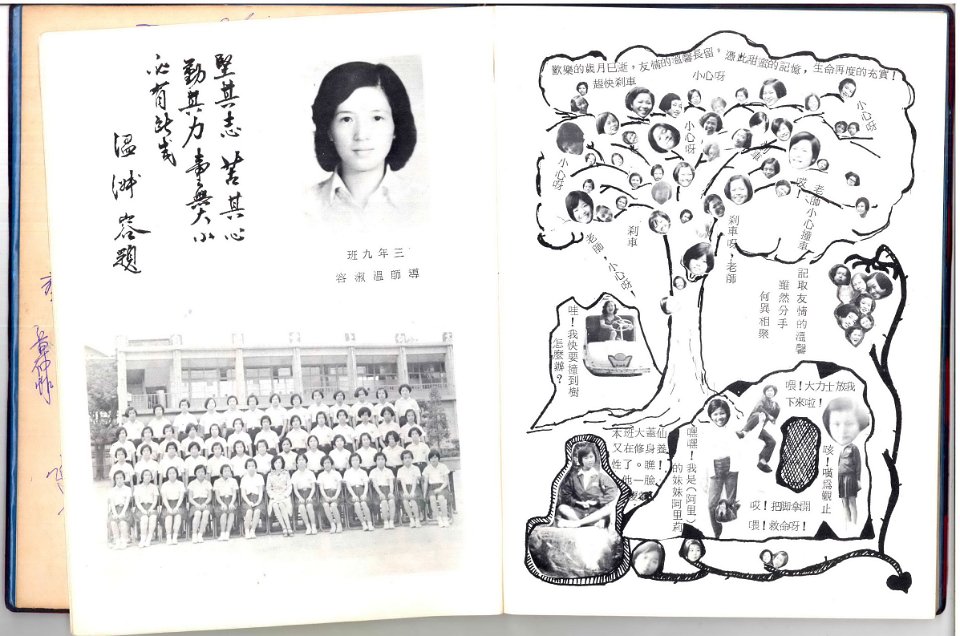 堅其志 苦其心
勤其力 事無大小
必有所成
溫淑容題
三年九班
導師溫淑容
歡樂的歲月已逝，友情的溫馨長留，憑此甜蜜的記憶，生命再度的充實！
趕快剎車
小心呀
小心呀
小心呀
小心呀
老師小心撞車
剎車呀，老師
剎車
老師，小心呀
記取友情的溫馨
雖然分手
何異相聚
哇！我快要撞到樹
怎麼辦？
喂！大力士放我
下來啦！
咳！嘆為觀止
哎！把脚拿開
喂！救命呀！
嘿嘿！我是（阿里）
的妹妹阿里莉
本班大蓋仙
又在修身養
性了。瞧！
他一臉